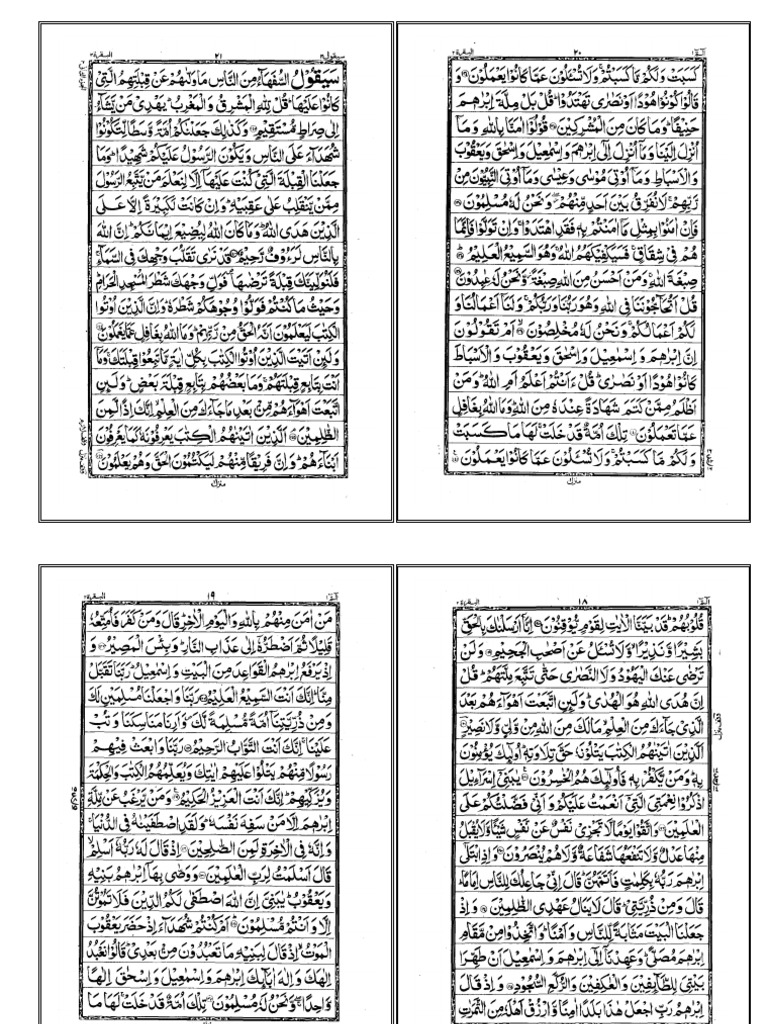 السقرة ٢٠ القرا
كَسَبَتْ وَلَكُمْ مَّا كَسَبْتُمْ وَلَا تُسْئَلُوْنَ عَمَّا كَانُوْا يَعْمَلُوْنَ وَ
قَالُوْا كُوْنُوْا هُوْدًا اَوْ نَصٰرٰى تَهْتَدُوْا قُلْ بَلْ مِلَّةَ اِبْرٰهٖمَ
حَنِيْفًا وَمَا كَانَ مِنَ الْمُشْرِكِيْنَ قُوْلُوْٓا اٰمَنَّا بِاللهِ وَمَآ
اُنْزِلَ اِلَيْنَا وَمَآ اُنْزِلَ اِلٰٓى اِبْرٰهٖمَ وَاِسْمٰعِيْلَ وَاِسْحٰقَ وَيَعْقُوْبَ
وَالْاَسْبَاطِ وَمَآ اُوْتِيَ مُوْسٰى وَعِيْسٰى وَمَآ اُوْتِيَ النَّبِيُّوْنَ مِنْ
رَّبِّهِمْ لَا نُفَرِّقُ بَيْنَ اَحَدٍ مِّنْهُمْ وَنَحْنُ لَهٗ مُسْلِمُوْنَ
فَاِنْ اٰمَنُوْا بِمِثْلِ مَآ اٰمَنْتُمْ بِهٖ فَقَدِ اهْتَدَوْا وَاِنْ تَوَلَّوْا فَاِنَّمَا
هُمْ فِيْ شِقَاقٍ فَسَيَكْفِيْكَهُمُ اللهُ وَهُوَ السَّمِيْعُ الْعَلِيْمُ
صِبْغَةَ اللهِ وَمَنْ اَحْسَنُ مِنَ اللهِ صِبْغَةً وَّنَحْنُ لَهٗ عٰبِدُوْنَ
قُلْ اَتُحَآجُّوْنَنَا فِي اللهِ وَهُوَ رَبُّنَا وَرَبُّكُمْ وَلَنَآ اَعْمَالُنَا وَ
لَكُمْ اَعْمَالُكُمْ وَنَحْنُ لَهٗ مُخْلِصُوْنَ اَمْ تَقُوْلُوْنَ
اِنَّ اِبْرٰهٖمَ وَاِسْمٰعِيْلَ وَاِسْحٰقَ وَيَعْقُوْبَ وَالْاَسْبَاطَ
كَانُوْا هُوْدًا اَوْ نَصٰرٰى قُلْ ءَاَنْتُمْ اَعْلَمُ اَمِ اللهُ وَمَنْ
اَظْلَمُ مِمَّنْ كَتَمَ شَهَادَةً عِنْدَهٗ مِنَ اللهِ وَمَا اللهُ بِغَافِلٍ
عَمَّا تَعْمَلُوْنَ تِلْكَ اُمَّةٌ قَدْ خَلَتْ لَهَا مَا كَسَبَتْ
وَلَكُمْ مَّا كَسَبْتُمْ وَلَا تُسْئَلُوْنَ عَمَّا كَانُوْا يَعْمَلُوْنَ
منزل
سيقول ٢١ السقرة
سَيَقُوْلُ السُّفَهَآءُ مِنَ النَّاسِ مَا وَلّٰىهُمْ عَنْ قِبْلَتِهِمُ الَّتِيْ
كَانُوْا عَلَيْهَا قُلْ لِّلّٰهِ الْمَشْرِقُ وَالْمَغْرِبُ يَهْدِيْ مَنْ يَّشَآءُ
اِلٰى صِرَاطٍ مُّسْتَقِيْمٍ وَكَذٰلِكَ جَعَلْنٰكُمْ اُمَّةً وَّسَطًا لِّتَكُوْنُوْا
شُهَدَآءَ عَلَى النَّاسِ وَيَكُوْنَ الرَّسُوْلُ عَلَيْكُمْ شَهِيْدًا وَمَا
جَعَلْنَا الْقِبْلَةَ الَّتِيْ كُنْتَ عَلَيْهَآ اِلَّا لِنَعْلَمَ مَنْ يَّتَّبِعُ الرَّسُوْلَ
مِمَّنْ يَّنْقَلِبُ عَلٰى عَقِبَيْهِ وَاِنْ كَانَتْ لَكَبِيْرَةً اِلَّا عَلَى
الَّذِيْنَ هَدَى اللهُ وَمَا كَانَ اللهُ لِيُضِيْعَ اِيْمَانَكُمْ اِنَّ اللهَ
بِالنَّاسِ لَرَءُوْفٌ رَّحِيْمٌ قَدْ نَرٰى تَقَلُّبَ وَجْهِكَ فِي السَّمَآءِ
فَلَنُوَلِّيَنَّكَ قِبْلَةً تَرْضٰىهَا فَوَلِّ وَجْهَكَ شَطْرَ الْمَسْجِدِ الْحَرَامِ
وَحَيْثُ مَا كُنْتُمْ فَوَلُّوْا وُجُوْهَكُمْ شَطْرَهٗ وَاِنَّ الَّذِيْنَ اُوْتُوا
الْكِتٰبَ لَيَعْلَمُوْنَ اَنَّهُ الْحَقُّ مِنْ رَّبِّهِمْ وَمَا اللهُ بِغَافِلٍ عَمَّا يَعْمَلُوْنَ
وَلَئِنْ اَتَيْتَ الَّذِيْنَ اُوْتُوا الْكِتٰبَ بِكُلِّ اٰيَةٍ مَّا تَبِعُوْا قِبْلَتَكَ وَمَآ
اَنْتَ بِتَابِعٍ قِبْلَتَهُمْ وَمَا بَعْضُهُمْ بِتَابِعٍ قِبْلَةَ بَعْضٍ وَلَئِنِ
اتَّبَعْتَ اَهْوَآءَهُمْ مِّنْ بَعْدِ مَا جَآءَكَ مِنَ الْعِلْمِ اِنَّكَ اِذًا لَّمِنَ
الظّٰلِمِيْنَ اَلَّذِيْنَ اٰتَيْنٰهُمُ الْكِتٰبَ يَعْرِفُوْنَهٗ كَمَا يَعْرِفُوْنَ
اَبْنَآءَهُمْ وَاِنَّ فَرِيْقًا مِّنْهُمْ لَيَكْتُمُوْنَ الْحَقَّ وَهُمْ يَعْلَمُوْنَ
منزل
السقرة ١٨ القرا
قُلُوْبُهُمْ قَدْ بَيَّنَّا الْاٰيٰتِ لِقَوْمٍ يُّوْقِنُوْنَ اِنَّآ اَرْسَلْنٰكَ بِالْحَقِّ
بَشِيْرًا وَّنَذِيْرًا وَّلَا تُسْئَلُ عَنْ اَصْحٰبِ الْجَحِيْمِ وَلَنْ
تَرْضٰى عَنْكَ الْيَهُوْدُ وَلَا النَّصٰرٰى حَتّٰى تَتَّبِعَ مِلَّتَهُمْ قُلْ
اِنَّ هُدَى اللهِ هُوَ الْهُدٰى وَلَئِنِ اتَّبَعْتَ اَهْوَآءَهُمْ بَعْدَ
الَّذِيْ جَآءَكَ مِنَ الْعِلْمِ مَالَكَ مِنَ اللهِ مِنْ وَّلِيٍّ وَّلَا نَصِيْرٍ
اَلَّذِيْنَ اٰتَيْنٰهُمُ الْكِتٰبَ يَتْلُوْنَهٗ حَقَّ تِلَاوَتِهٖ اُولٰٓئِكَ يُؤْمِنُوْنَ
بِهٖ وَمَنْ يَّكْفُرْ بِهٖ فَاُولٰٓئِكَ هُمُ الْخٰسِرُوْنَ يٰبَنِيْٓ اِسْرَآءِيْلَ
اذْكُرُوْا نِعْمَتِيَ الَّتِيْٓ اَنْعَمْتُ عَلَيْكُمْ وَاَنِّيْ فَضَّلْتُكُمْ عَلَى
الْعٰلَمِيْنَ وَاتَّقُوْا يَوْمًا لَّا تَجْزِيْ نَفْسٌ عَنْ نَّفْسٍ شَيْئًا وَّلَا يُقْبَلُ
مِنْهَا عَدْلٌ وَّلَا تَنْفَعُهَا شَفَاعَةٌ وَّلَا هُمْ يُنْصَرُوْنَ وَاِذِ ابْتَلٰٓى
اِبْرٰهٖمَ رَبُّهٗ بِكَلِمٰتٍ فَاَتَمَّهُنَّ قَالَ اِنِّيْ جَاعِلُكَ لِلنَّاسِ اِمَامًا
قَالَ وَمِنْ ذُرِّيَّتِيْ قَالَ لَا يَنَالُ عَهْدِي الظّٰلِمِيْنَ وَاِذْ
جَعَلْنَا الْبَيْتَ مَثَابَةً لِّلنَّاسِ وَاَمْنًا وَاتَّخِذُوْا مِنْ مَّقَامِ
اِبْرٰهٖمَ مُصَلًّى وَعَهِدْنَآ اِلٰٓى اِبْرٰهٖمَ وَاِسْمٰعِيْلَ اَنْ طَهِّرَا
بَيْتِيَ لِلطَّآئِفِيْنَ وَالْعٰكِفِيْنَ وَالرُّكَّعِ السُّجُوْدِ وَاِذْ قَالَ
اِبْرٰهٖمُ رَبِّ اجْعَلْ هٰذَا بَلَدًا اٰمِنًا وَّارْزُقْ اَهْلَهٗ مِنَ الثَّمَرٰتِ
السقرة ١٩ القرا
مَنْ اٰمَنَ مِنْهُمْ بِاللهِ وَالْيَوْمِ الْاٰخِرِ قَالَ وَمَنْ كَفَرَ فَاُمَتِّعُهٗ
قَلِيْلًا ثُمَّ اَضْطَرُّهٗٓ اِلٰى عَذَابِ النَّارِ وَبِئْسَ الْمَصِيْرُ وَ
اِذْ يَرْفَعُ اِبْرٰهٖمُ الْقَوَاعِدَ مِنَ الْبَيْتِ وَاِسْمٰعِيْلُ رَبَّنَا تَقَبَّلْ
مِنَّا اِنَّكَ اَنْتَ السَّمِيْعُ الْعَلِيْمُ رَبَّنَا وَاجْعَلْنَا مُسْلِمَيْنِ لَكَ
وَمِنْ ذُرِّيَّتِنَآ اُمَّةً مُّسْلِمَةً لَّكَ وَاَرِنَا مَنَاسِكَنَا وَتُبْ
عَلَيْنَا اِنَّكَ اَنْتَ التَّوَّابُ الرَّحِيْمُ رَبَّنَا وَابْعَثْ فِيْهِمْ
رَسُوْلًا مِّنْهُمْ يَتْلُوْا عَلَيْهِمْ اٰيٰتِكَ وَيُعَلِّمُهُمُ الْكِتٰبَ وَالْحِكْمَةَ
وَيُزَكِّيْهِمْ اِنَّكَ اَنْتَ الْعَزِيْزُ الْحَكِيْمُ وَمَنْ يَّرْغَبُ عَنْ مِّلَّةِ
اِبْرٰهٖمَ اِلَّا مَنْ سَفِهَ نَفْسَهٗ وَلَقَدِ اصْطَفَيْنٰهُ فِي الدُّنْيَا
وَاِنَّهٗ فِي الْاٰخِرَةِ لَمِنَ الصّٰلِحِيْنَ اِذْ قَالَ لَهٗ رَبُّهٗٓ اَسْلِمْ
قَالَ اَسْلَمْتُ لِرَبِّ الْعٰلَمِيْنَ وَوَصّٰى بِهَآ اِبْرٰهٖمُ بَنِيْهِ
وَيَعْقُوْبُ يٰبَنِيَّ اِنَّ اللهَ اصْطَفٰى لَكُمُ الدِّيْنَ فَلَا تَمُوْتُنَّ
اِلَّا وَاَنْتُمْ مُّسْلِمُوْنَ اَمْ كُنْتُمْ شُهَدَآءَ اِذْ حَضَرَ يَعْقُوْبَ
الْمَوْتُ اِذْ قَالَ لِبَنِيْهِ مَا تَعْبُدُوْنَ مِنْ بَعْدِيْ قَالُوْا نَعْبُدُ
اِلٰهَكَ وَاِلٰهَ اٰبَآئِكَ اِبْرٰهٖمَ وَاِسْمٰعِيْلَ وَاِسْحٰقَ اِلٰهًا
وَّاحِدًا وَّنَحْنُ لَهٗ مُسْلِمُوْنَ تِلْكَ اُمَّةٌ قَدْ خَلَتْ لَهَا مَا